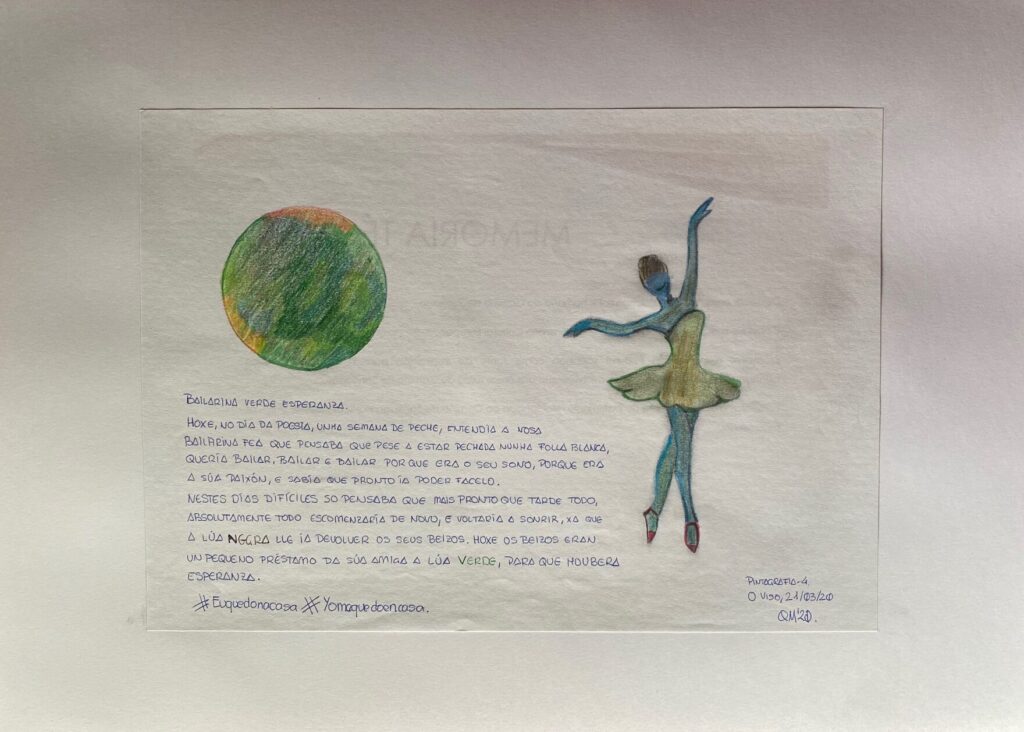 BAILARINA VERDE ESPERANZA.
HOXE, NO DÍA DA POESÍA, UNHA SEMANA DE PECHE, ENTENDÍA A NOSA
BAILARINA FEA QUE PENSABA QUE PESE A ESTAR PECHADA NUNHA FOLLA BLANCA,
QUERÍA BAILAR, BAILAR E BAILAR PORQUE ERA O SEU SONO, PORQUE ERA
A SÚA PAIXÓN, E SABÍA QUE PRONTO ÍA PODER FACELO.
NESTES DÍAS DIFÍCILES SO PENSABA QUE MAIS PRONTO QUE TARDE TODO,
ABSOLUTAMENTE TODO ESCOMENZARÍA DE NOVO, E VOLTARÍA A SOURIR, XA QUE
A LÚA NEGRA LLE ÍA DEVOLVER OS SEUS BEIZOS. HOXE OS BEIZOS ERAN
UN PEQUENO PRÉSTAMO DA SÚA AMIGA A LÚA VERDE, PARA QUE HOUBERA
ESPERANZA.
#Euquedonacasa #Yomequedoencasa.
PINTAGRAFIA-4.
O VISO, 21/03/20
QM'20.